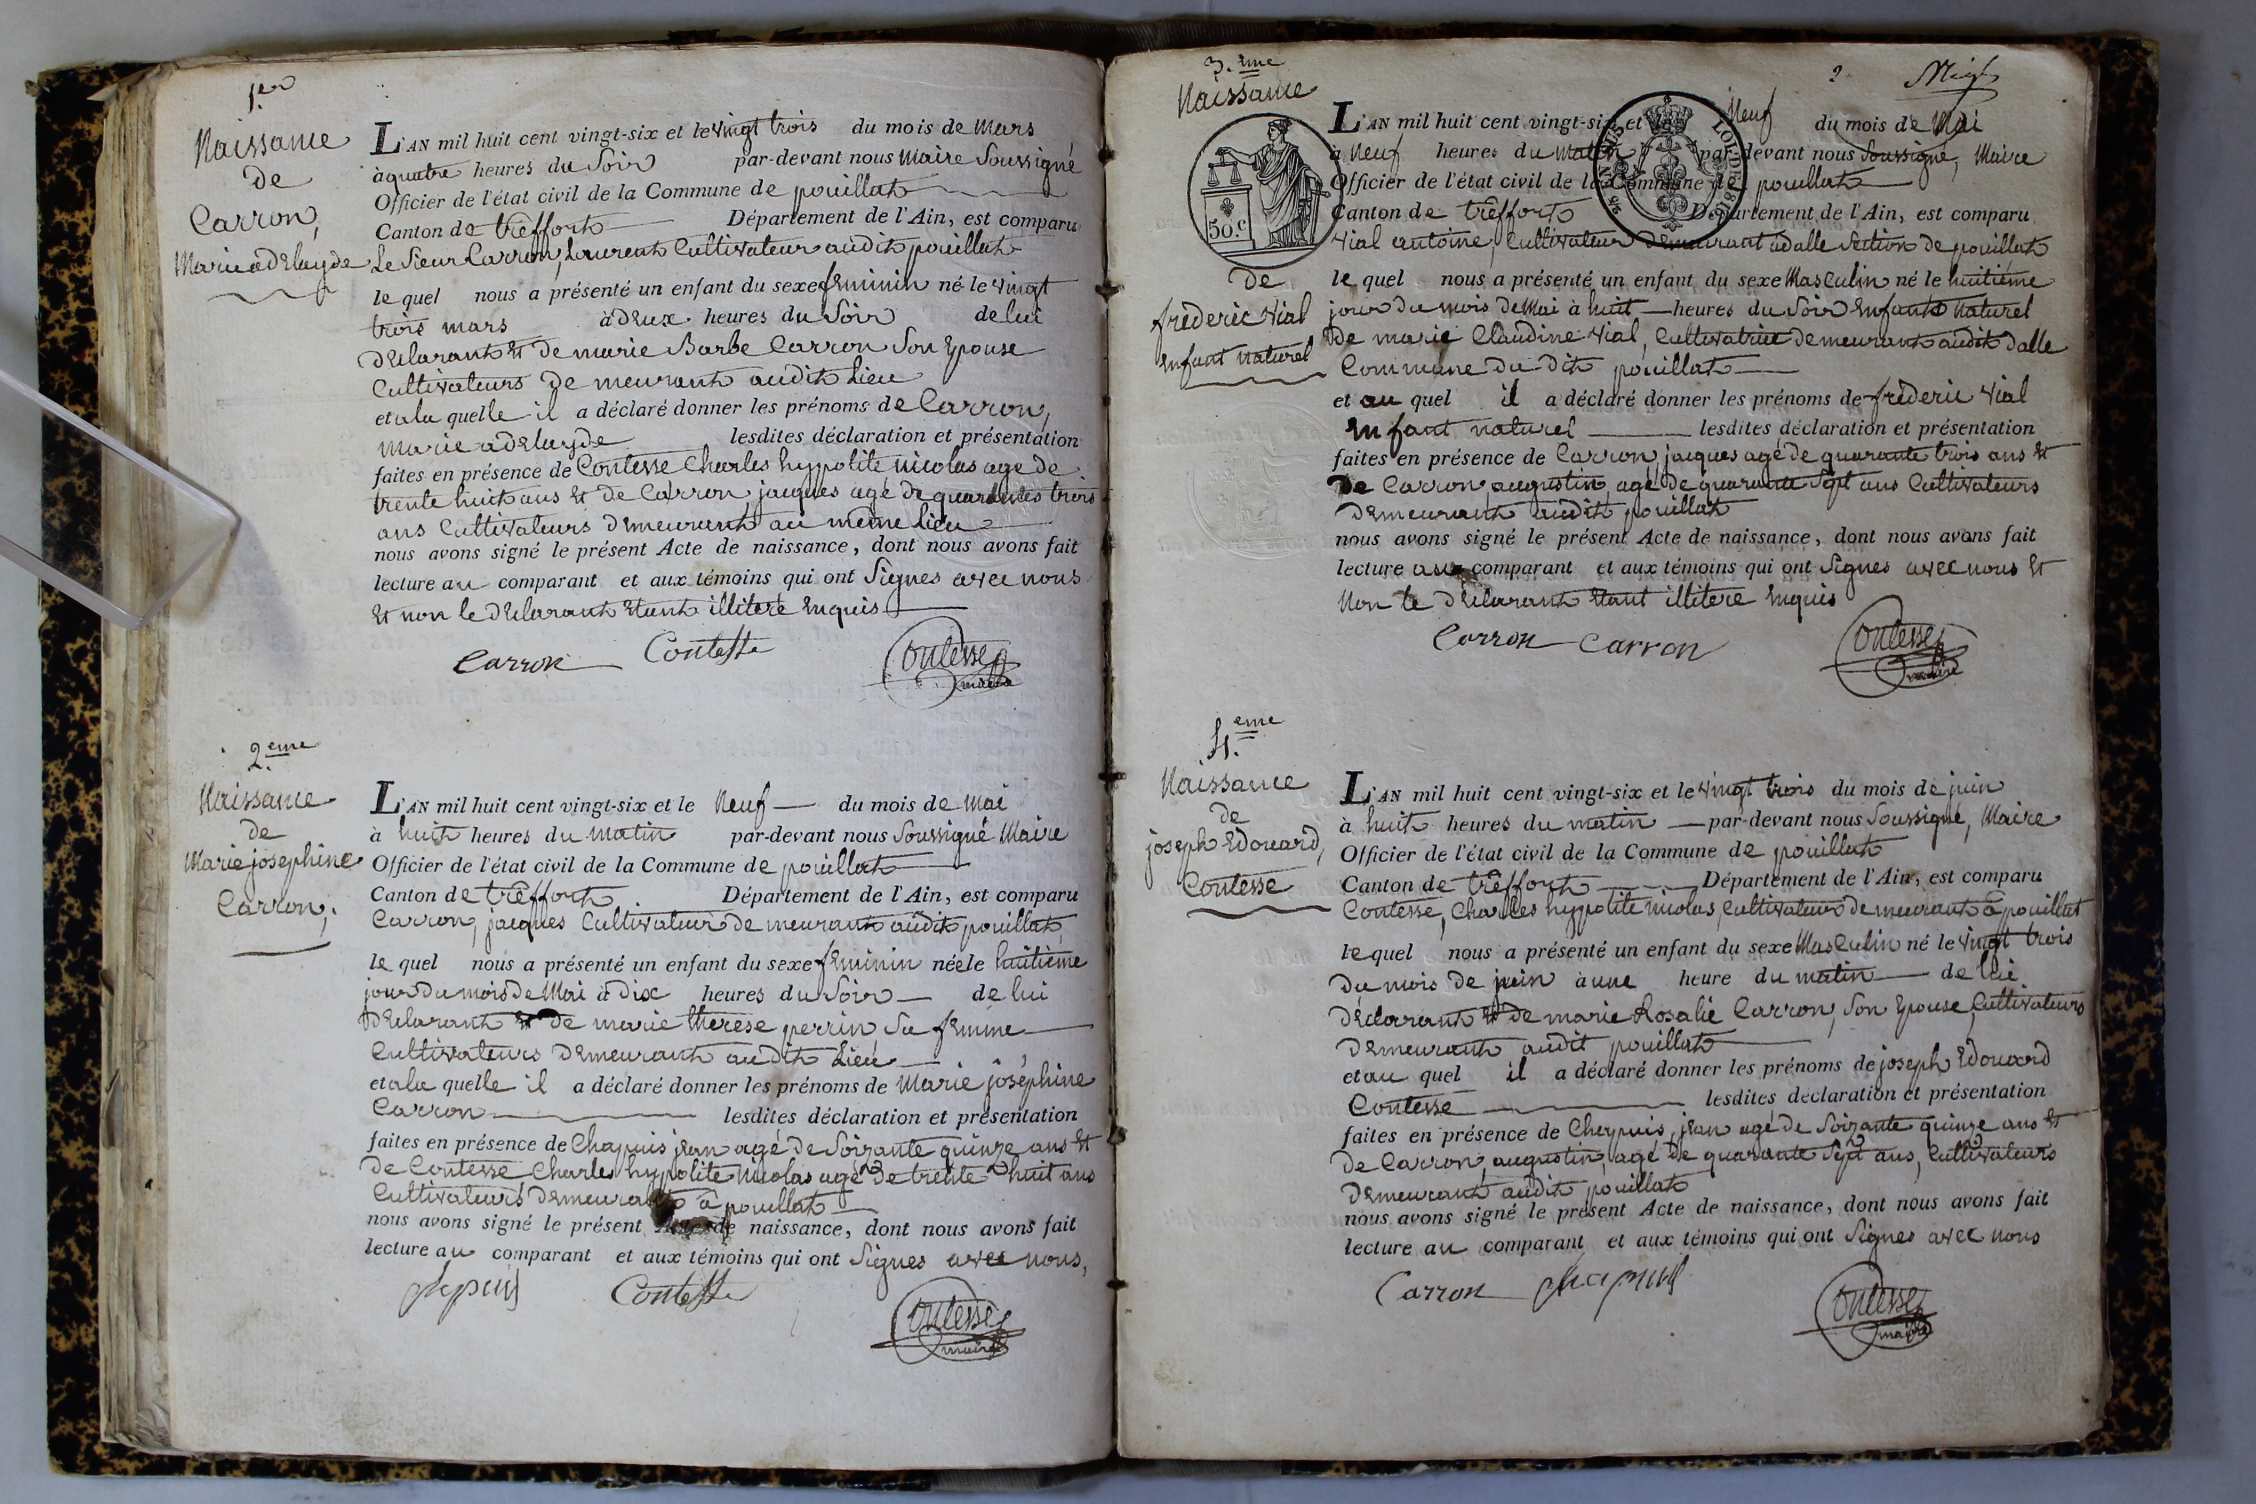 1.er
Naissance
de
Carron,
Marie adelayde
L'AN mil huit cent vingt-six et le vingt trois du mois de Mars
à quatre heures du Soir par-devant nous Maire Soussigné
Officier de l'état civil de la Commune de pouillat
Canton de trêffort Département de l'Ain, est comparu
Le Sieur Carron, Laurent Cultivateur audit pouillat
le quel nous a présenté un enfant du sexe feminin né le vingt
trois mars à deux heures du Soir de lui
déclarant et de marie Barbe Carron Son Epouse
Cultivateurs demeurant audit Lieu
et a la quelle il a déclaré donner les prénoms de Carron,
Marie adelayde lesdites déclaration et présentation
faites en présence de Contesse Charles hyppolite nicolas age de
trente huit ans et de Carron, jacques agé de quarentes trois
ans Cultivateurs demeurant au même Lieu
nous avons signé le présent Acte de naissance, dont nous avons fait
lecture au comparant et aux témoins qui ont Signes avec nous
et non le déclarant étant illiteré enquis
Carron Contesse Contesse
maire
2.eme
Naissance
de
Marie josephine
Carron,
L'AN mil huit cent vingt-six et le Neuf du mois de Mai
à huit heures du matin par-devant nous Soussigné Maire
Officier de l'état civil de la Commune de pouillat
Canton de trêffort Département de l'Ain, est comparu
Carron, jacques Cultivateur demeurant audit pouillat,
le quel nous a présenté un enfant du sexe feminin née le huitième
jour du mois de Mai à dix heures du Soir de lui
déclarant et de marie thérèse perrin Sa femme
Cultivateurs demeurant audit Lieu
et a la quelle il a déclaré donner les prénoms de Marie joséphine
Carron lesdites déclaration et présentation
faites en présence de Chapuis jean agé de Soixante quinze ans et
de Contesse Charles hyppolite Nicolas agé de trente huit ans
Cultivateurs demeurant à pouillat
nous avons signé le présent Acte de naissance, dont nous avons fait
lecture au comparant et aux témoins qui ont Signes avec nous,
Contesse Contesse
maire
3.eme
Naissance
50.c
de
fréderic Vial
Enfant naturel
2
L'AN mil huit cent vingt-six et le Neuf du mois de Mai
à Neuf heures du Matin par-devant nous Soussigné, Maire
Officier de l'état civil de la Commune de pouillat
Canton de trêffort Département de l'Ain, est comparu
LOI DE 1816
Vial antoine, Cultivateur demeurant à dalle Section de pouillat
le quel nous a présenté un enfant du sexe Masculin né le huitième
jour du mois de Mai à huit heures du Soir Enfant Naturel
De marie Claudine Vial, Cultivatrice demeurant audit dalle
Commune du dit pouillat
et au quel il a déclaré donner les prénoms de fréderic Vial
Enfant naturel lesdites déclaration et présentation
faites en présence de Carron, jacques agé de quarante trois ans et
De Carron, augustin, agé de quarante Sept ans Cultivateurs
demeurant audit pouillat
nous avons signé le présent Acte de naissance, dont nous avons fait
lecture aux comparant et aux témoins qui ont Signes avec nous et
Non le déclarant étant illitere enquis
Carron Carron Contesse
maire
4.eme
Naissance
de
joseph Edouard,
Contesse
L'AN mil huit cent vingt-six et le vingt trois du mois de juin
à huit heures du matin par-devant nous Soussigné, Maire
Officier de l'état civil de la Commune de pouillat
Canton de trêffort Département de l'Ain, est comparu
Contesse, Charles hyppolite nicolas, Cultivateur demeurant à pouillat
le quel nous a présenté un enfant du sexe Masculin né le vingt trois
du mois de juin à une heure du matin de lui
déclarant et de marie Rosalie Carron, Son Epouse, Cultivateurs
demeurant audit pouillat
et au quel il a déclaré donner les prénoms de joseph Edouard
Contesse lesdites déclaration et présentation
faites en présence de Cheypuis, jean agé de Soixante quinze ans et
de Carron, augustin, agé de quarante Sept ans, Cultivateurs
demeurant audit pouillat
nous avons signé le présent Acte de naissance, dont nous avons fait
lecture au comparant et aux témoins qui ont Signes avec nous
Carron Chapuis Contesse
maire